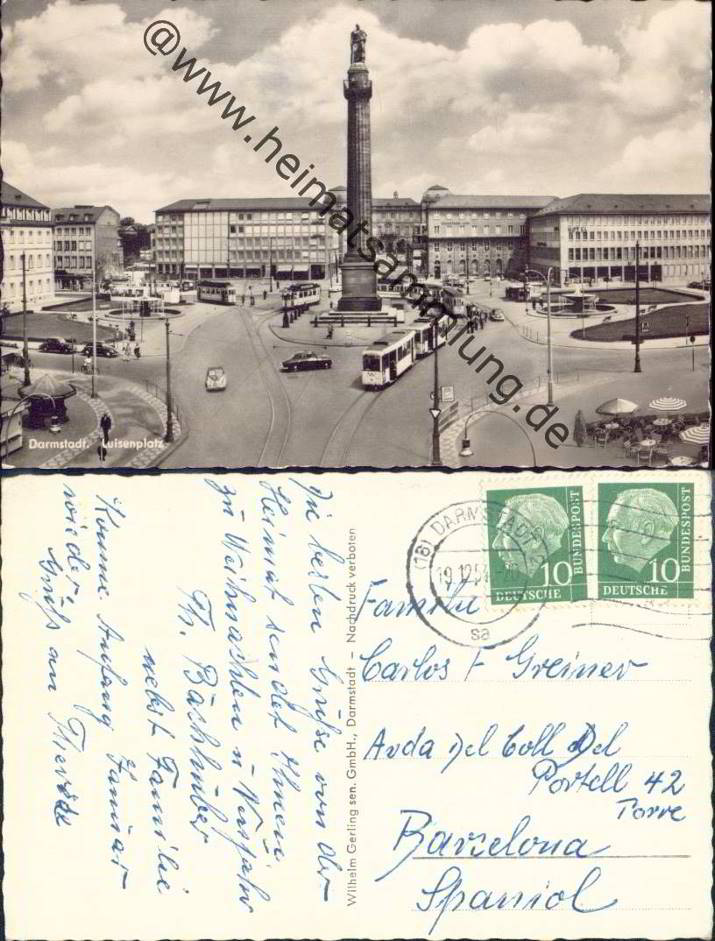 @www.heimatsammlung.de
Darmstadt. Luisenplatz
Die besten Grüße von der
Heimat sendet Ihnen
zu Weihnachten u Neujahr
Th. Bachhuber
nebst Familie
Komme Anfang Januar
wieder,
Gruß an
Wilhelm Gerling sen. GmbH., Darmstadt – Nachdruck verboten
(16) DARMSTADT
19.12.5
sa
10
DEUTSCHE
BUNDESPOST
10
DEUTSCHE
BUNDESPOST
Familie
Carlos F Greiner
Avda del Coll del
Portell 42
Torre
Barzelona
Spaniol